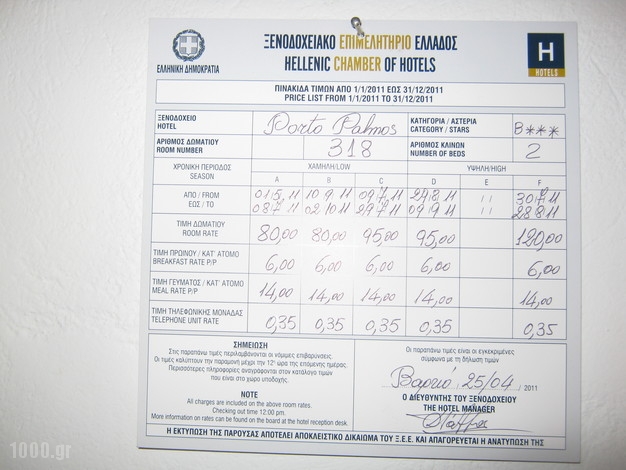 ΞΕΝΟΔΟΧΕΙΑΚΟ ΕΠΙΜΕΛΗΤΗΡΙΟ ΕΛΛΑΔΟΣ
HELLENIC CHAMBER OF HOTELS
ΕΛΛΗΝΙΚΗ ΔΗΜΟΚΡΑΤΙΑ
H
HOTELS
ΠΙΝΑΚΙΔΑ ΤΙΜΩΝ ΑΠΟ 1/1/2011 ΕΩΣ 31/12/2011
PRICE LIST FROM 1/1/2011 TO 31/12/2011
ΞΕΝΟΔΟΧΕΙΟ
HOTEL
Porto Palmos
ΚΑΤΗΓΟΡΙΑ / ΑΣΤΕΡΙΑ
CATEGORY / STARS
B***
ΑΡΙΘΜΟΣ ΔΩΜΑΤΙΟΥ
ROOM NUMBER
318
ΑΡΙΘΜΟΣ ΚΛΙΝΩΝ
NUMBER OF BEDS
2
ΧΡΟΝΙΚΗ ΠΕΡΙΟΔΟΣ
SEASON
ΧΑΜΗΛΗ/LOW ΥΨΗΛΗ/HIGH
A B C D E F
ΑΠΟ / FROM
ΕΩΣ / TO
01 5 11 10 9 11 09 7 11 24 8 11 11 30 7 11
08 7 11 02 10 11 29 7 11 09 9 11 11 28 8 11
ΤΙΜΗ ΔΩΜΑΤΙΟΥ
ROOM RATE
80,00 80,00 95,00 95,00 120,00
ΤΙΜΗ ΠΡΩΙΝΟΥ / ΚΑΤ' ΑΤΟΜΟ
BREAKFAST RATE P/P
6,00 6,00 6,00 6,00 6,00
ΤΙΜΗ ΓΕΥΜΑΤΟΣ / ΚΑΤ' ΑΤΟΜΟ
MEAL RATE P/P
14,00 14,00 14,00 14,00 14,00
ΤΙΜΗ ΤΗΛΕΦΩΝΙΚΗΣ ΜΟΝΑΔΑΣ
TELEPHONE UNIT RATE
0,35 0,35 0,35 0,35 0,35
ΣΗΜΕΙΩΣΗ
Στις παραπάνω τιμές περιλαμβάνονται οι νόμιμες επιβαρύνσεις.
Οι τιμές καλύπτουν την παραμονή μέχρι την 12η ώρα της επόμενης ημέρας.
Περισσότερες πληροφορίες αναγράφονται στον κατάλογο τιμών
που είναι στο χώρο υποδοχής.
NOTE
All charges are included on the above room rates.
Checking out time 12:00 pm.
More information on rates can be found on the board at the hotel reception desk.
Οι παραπάνω τιμές είναι οι εγκεκριμένες
σύμφωνα με τη δήλωση τιμών
25/04 / 2011
Ο ΔΙΕΥΘΥΝΤΗΣ ΤΟΥ ΞΕΝΟΔΟΧΕΙΟΥ
THE HOTEL MANAGER
Η ΕΚΤΥΠΩΣΗ ΤΗΣ ΠΑΡΟΥΣΑΣ ΑΠΟΤΕΛΕΙ ΑΠΟΚΛΕΙΣΤΙΚΟ ΔΙΚΑΙΩΜΑ ΤΟΥ Ξ.Ε.Ε. ΚΑΙ ΑΠΑΓΟΡΕΥΕΤΑΙ Η ΑΝΑΤΥΠΩΣΗ ΤΗΣ
1000.gr